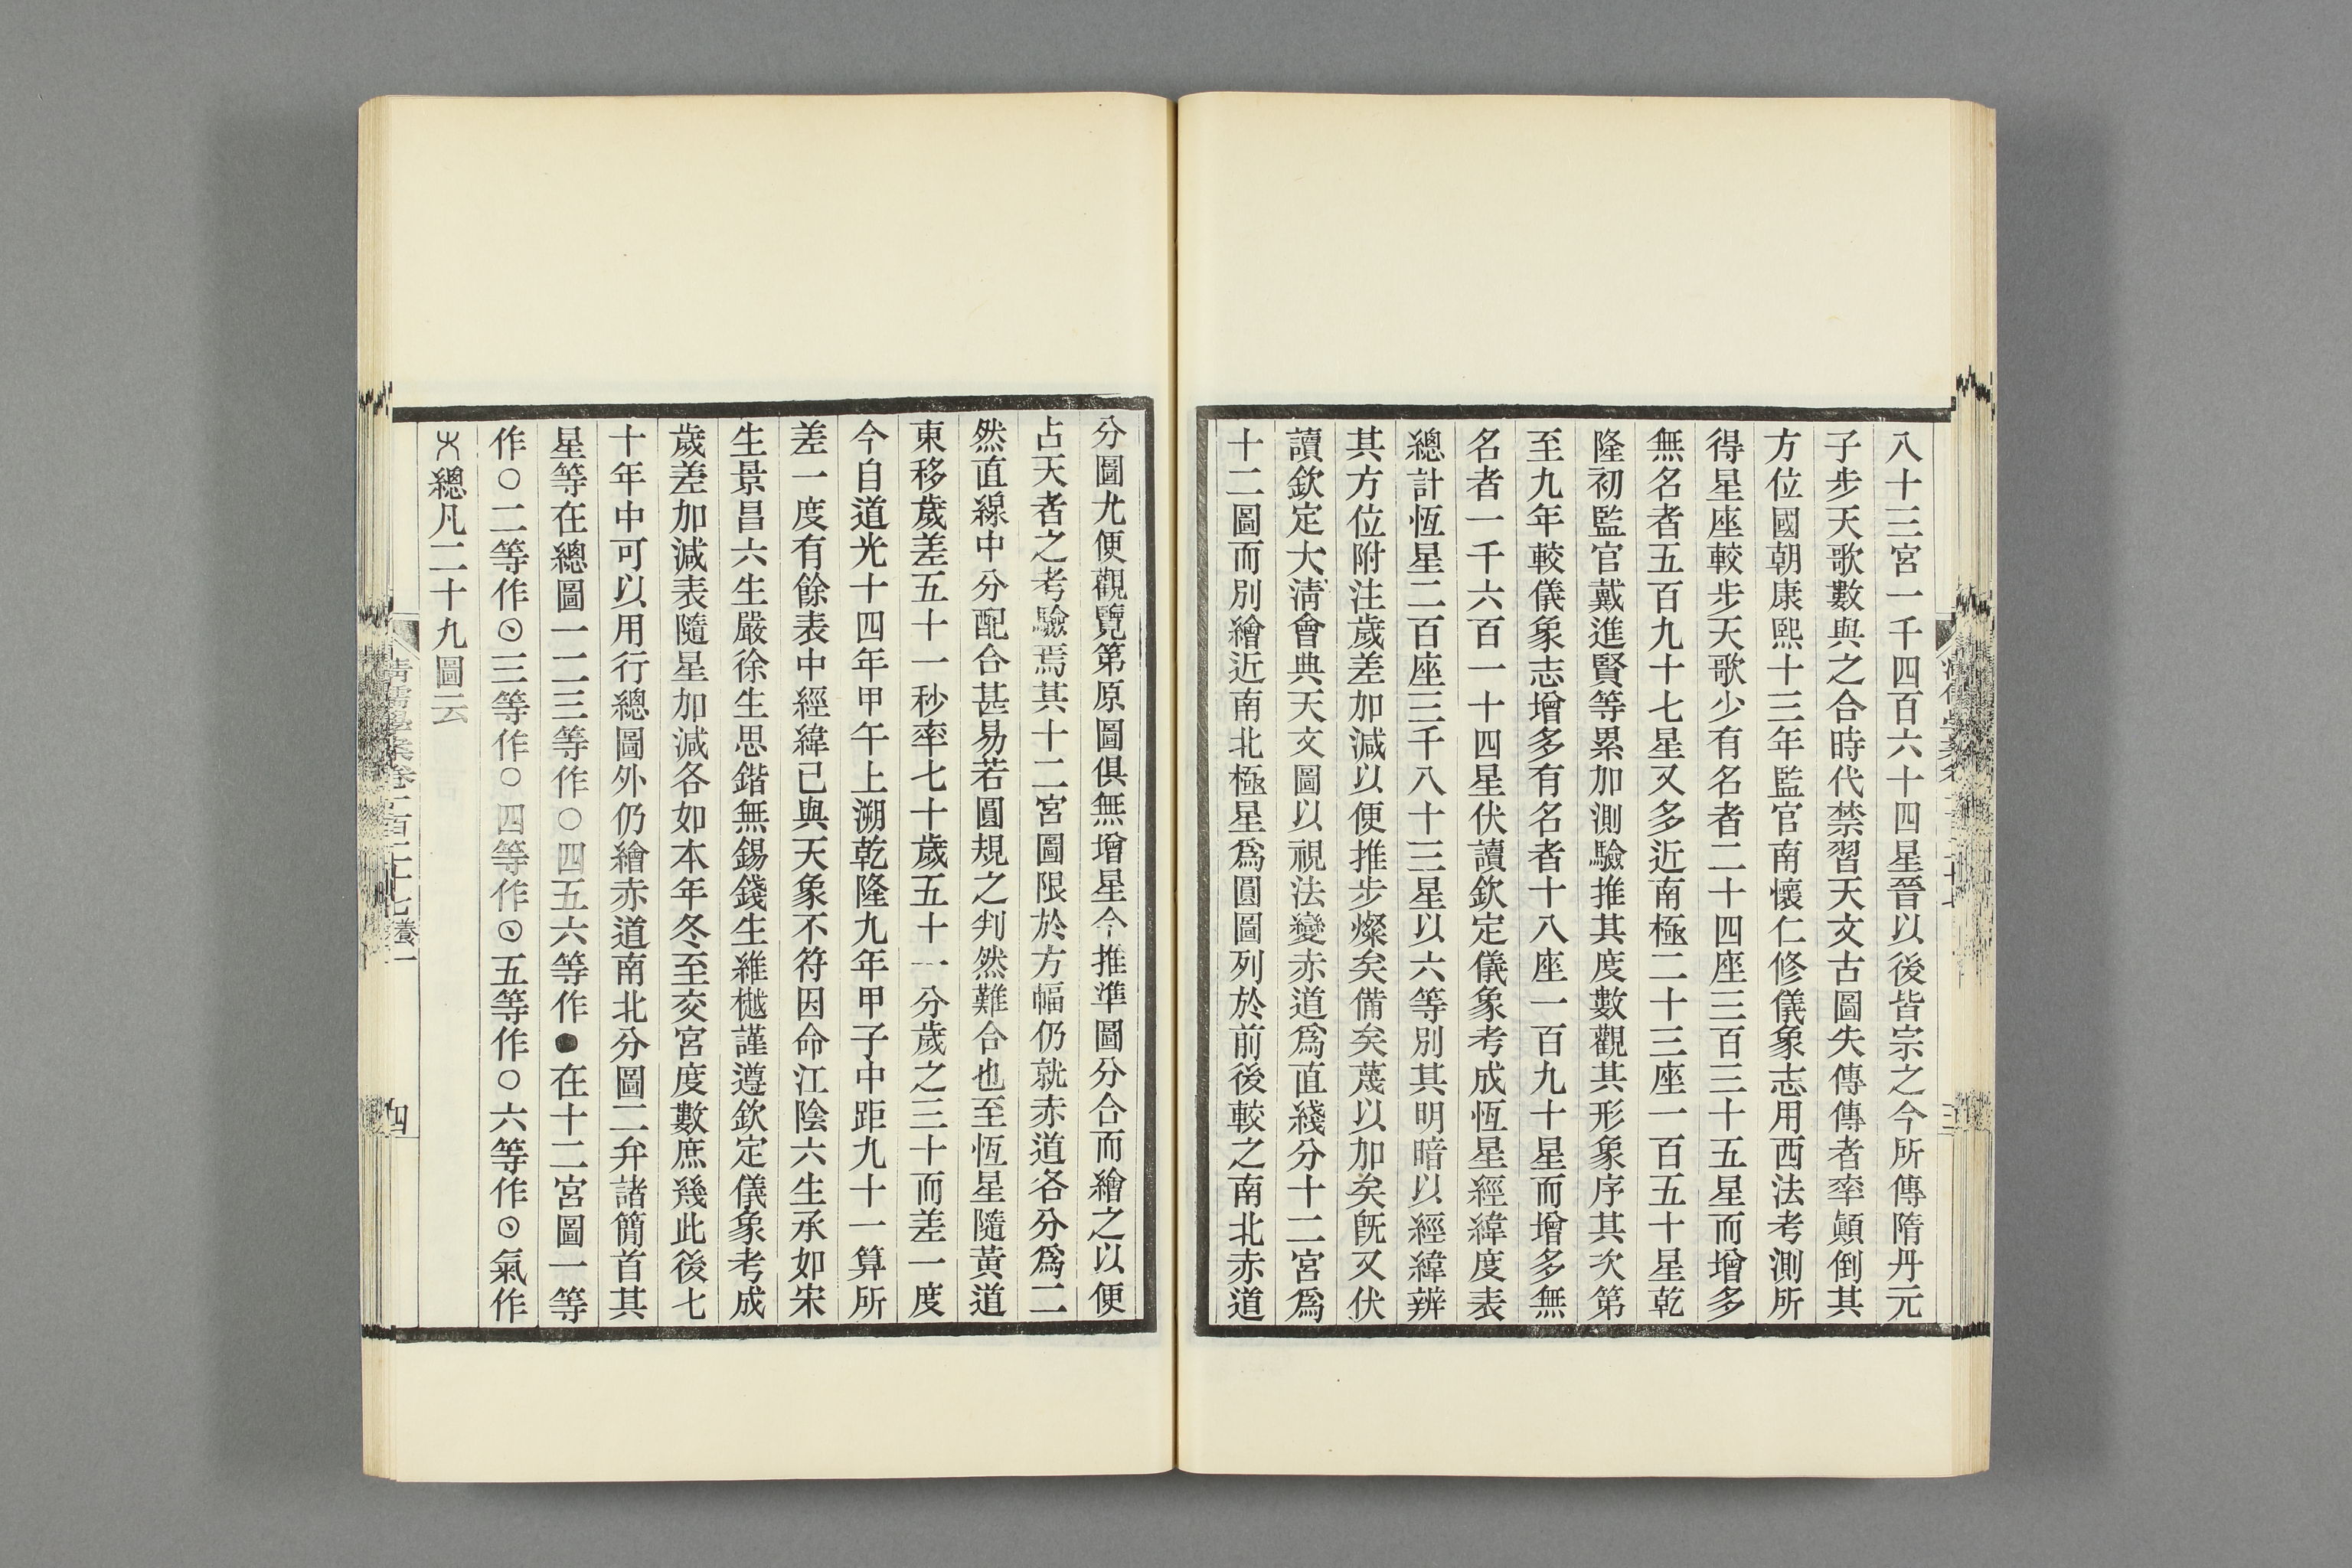 八十三宮一千四百六十四星晉以後皆宗之今所傳隋丹元
子步天歌數與之合時代禁習天文古圖失傳傳者率顚倒其
方位國朝康熙十三年監官南懷仁修儀象志用西法考測所
得星座較步天歌少有名者二十四座三百三十五星而增多
無名者五百九十七星又多近南極二十三座一百五十星乾
隆初監官戴進賢等累加測驗推其度數觀其形象序其次第
至九年較儀象志增多有名者十八座一百九十星而增多無
名者一千六百一十四星伏讀欽定儀象考成恆星經緯度表
總計恆星三百座三千八十三星以六等別其明暗以經緯辨
其方位附注歲差加減以便推步燦矣備矣蔑以加矣旣又伏
讀欽定大淸會典天文圖以視法變赤道爲直綫分十二宮爲
十二圖而別繪近南北極星爲圓圖列於前後較之南北赤道
分圖尤便觀覽第原圖俱無增星今推準圖分合而繪之以便
占天者之考驗焉其十二宮圖限於方幅仍就赤道各分爲二
然直線中分配合甚易若圓規之判然難合也至恆星隨黃道
東移歲差五十一秒率七十歲五十一分歲之三十而差一度
今自道光十四年甲午上溯乾隆九年甲子中距九十一算所
差一度有餘表中經緯已與天象不符因命江陰六生承如宋
生景昌六生嚴徐生思鍇無錫錢生維樾謹遵欽定儀象考成
歲差加減表隨星加減各如本年冬至交宮度數庶幾此後七
十年中可以用行總圖外仍繪赤道南北分圖二弁諸簡首其
星等在總圖一二三等作○四五六等作●在十二宮圖一等
作○二等作⊙三等作○四等作⊙五等作○六等作⊙氣作
總凡二十九圖云
清儒學案卷一百二十七養一
四
三